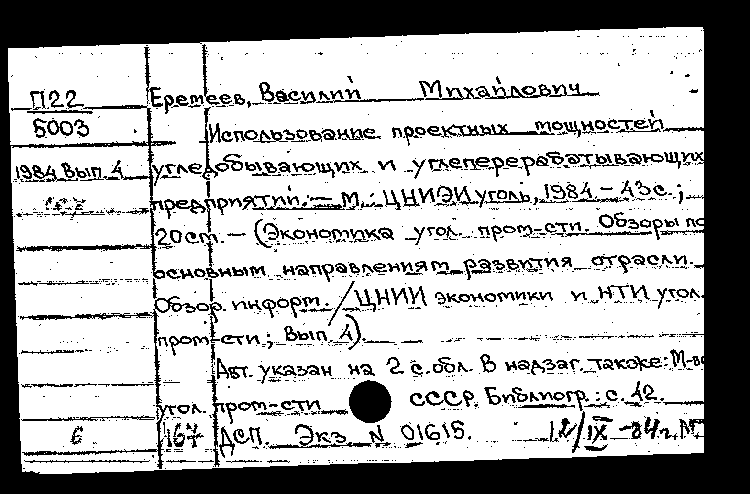 П22 Еремеев, Василий Михайлович
5003 Использование проектных мощностей
1984 Вып. 4 угледобывающих и углеперерабатывающих
предприятий. — М.: ЦНИЭИуголь, 1984 - 43с.;
20см. — (Экономика угол. пром-сти. Обзоры по
основным направлениям развития отрасли.
Обзор. информ. / ЦНИИ экономики и НТИ угол.
пром-сти; Вып 4).
Авт. указан на 2 с. обл. В надзаг. также: М-во
угол. пром-сти СССР. Библиогр.: с. 42.
6 167 ДСП. Экз N 01615. 12/IX-84г.